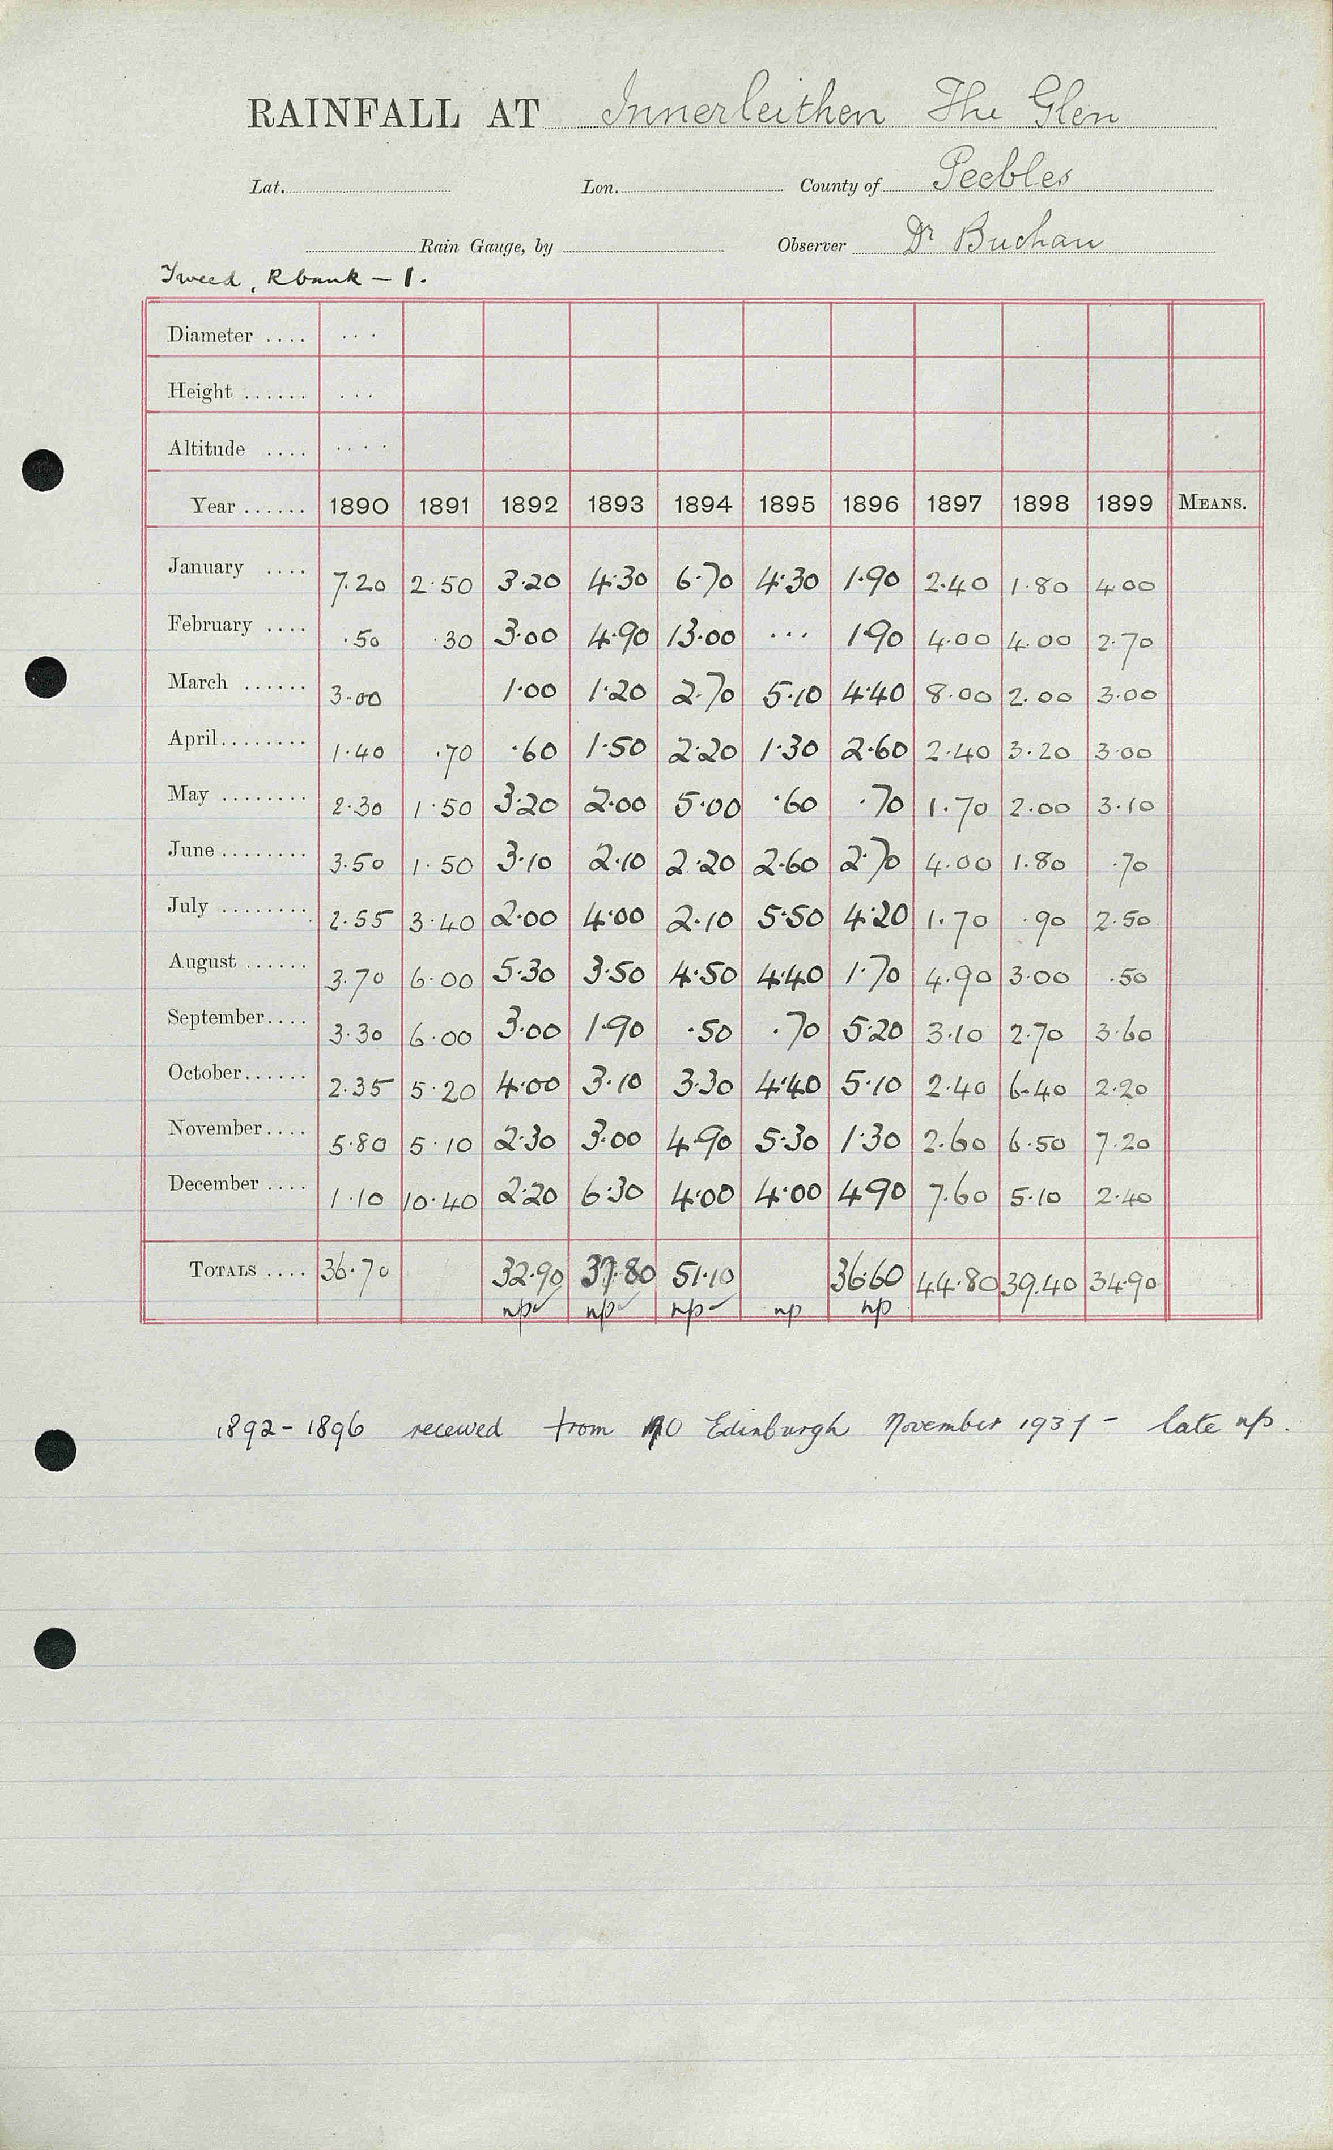 RAINFALL AT Innerleithen The Glen
Lat. Lon. County of Peebles
Rain Gauge, by Observer Dr Buchan
Tweed, R bank - 1.
Diameter .... ...
Height ...... ...
Altitude .... ....
Year ...... 1890 1891 1892 1893 1894 1895 1896 1897 1898 1899 MEANS.
January .... 7.20 2.50 3.20 4.30 6.70 4.30 1.90 2.40 1.80 4.00
February .... .50 .30 3.00 4.90 13.00 ... 1.90 4.00 4.00 2.70
March ...... 3.00 1.00 1.20 2.70 5.10 4.40 8.00 2.00 3.00
April........ 1.40 .70 .60 1.50 2.20 1.30 2.60 2.40 3.20 3.00
May ........ 2.30 1.50 3.20 2.00 5.00 .60 .70 1.70 2.00 3.10
June ........ 3.50 1.50 3.10 2.10 2.20 2.60 2.70 4.00 1.80 .70
July ........ 2.55 3.40 2.00 4.00 2.10 5.50 4.20 1.70 .90 2.50
August ...... 3.70 6.00 5.30 3.50 4.50 4.40 1.70 4.90 3.00 .50
September.... 3.30 6.00 3.00 1.90 .50 .70 5.20 3.10 2.70 3.60
October...... 2.35 5.20 4.00 3.10 3.30 4.40 5.10 2.40 6.40 2.20
November.... 5.80 5.10 2.30 3.00 4.90 5.30 1.30 2.60 6.50 7.20
December .... 1.10 10.40 2.20 6.30 4.00 4.00 4.90 7.60 5.10 2.40
TOTALS .... 36.70 32.90 37.80 51.10 36.60 44.80 39.40 34.90
np✓ np✓ np✓ np np
1892-1896 received from MO Edinburgh November 1937 - late np.